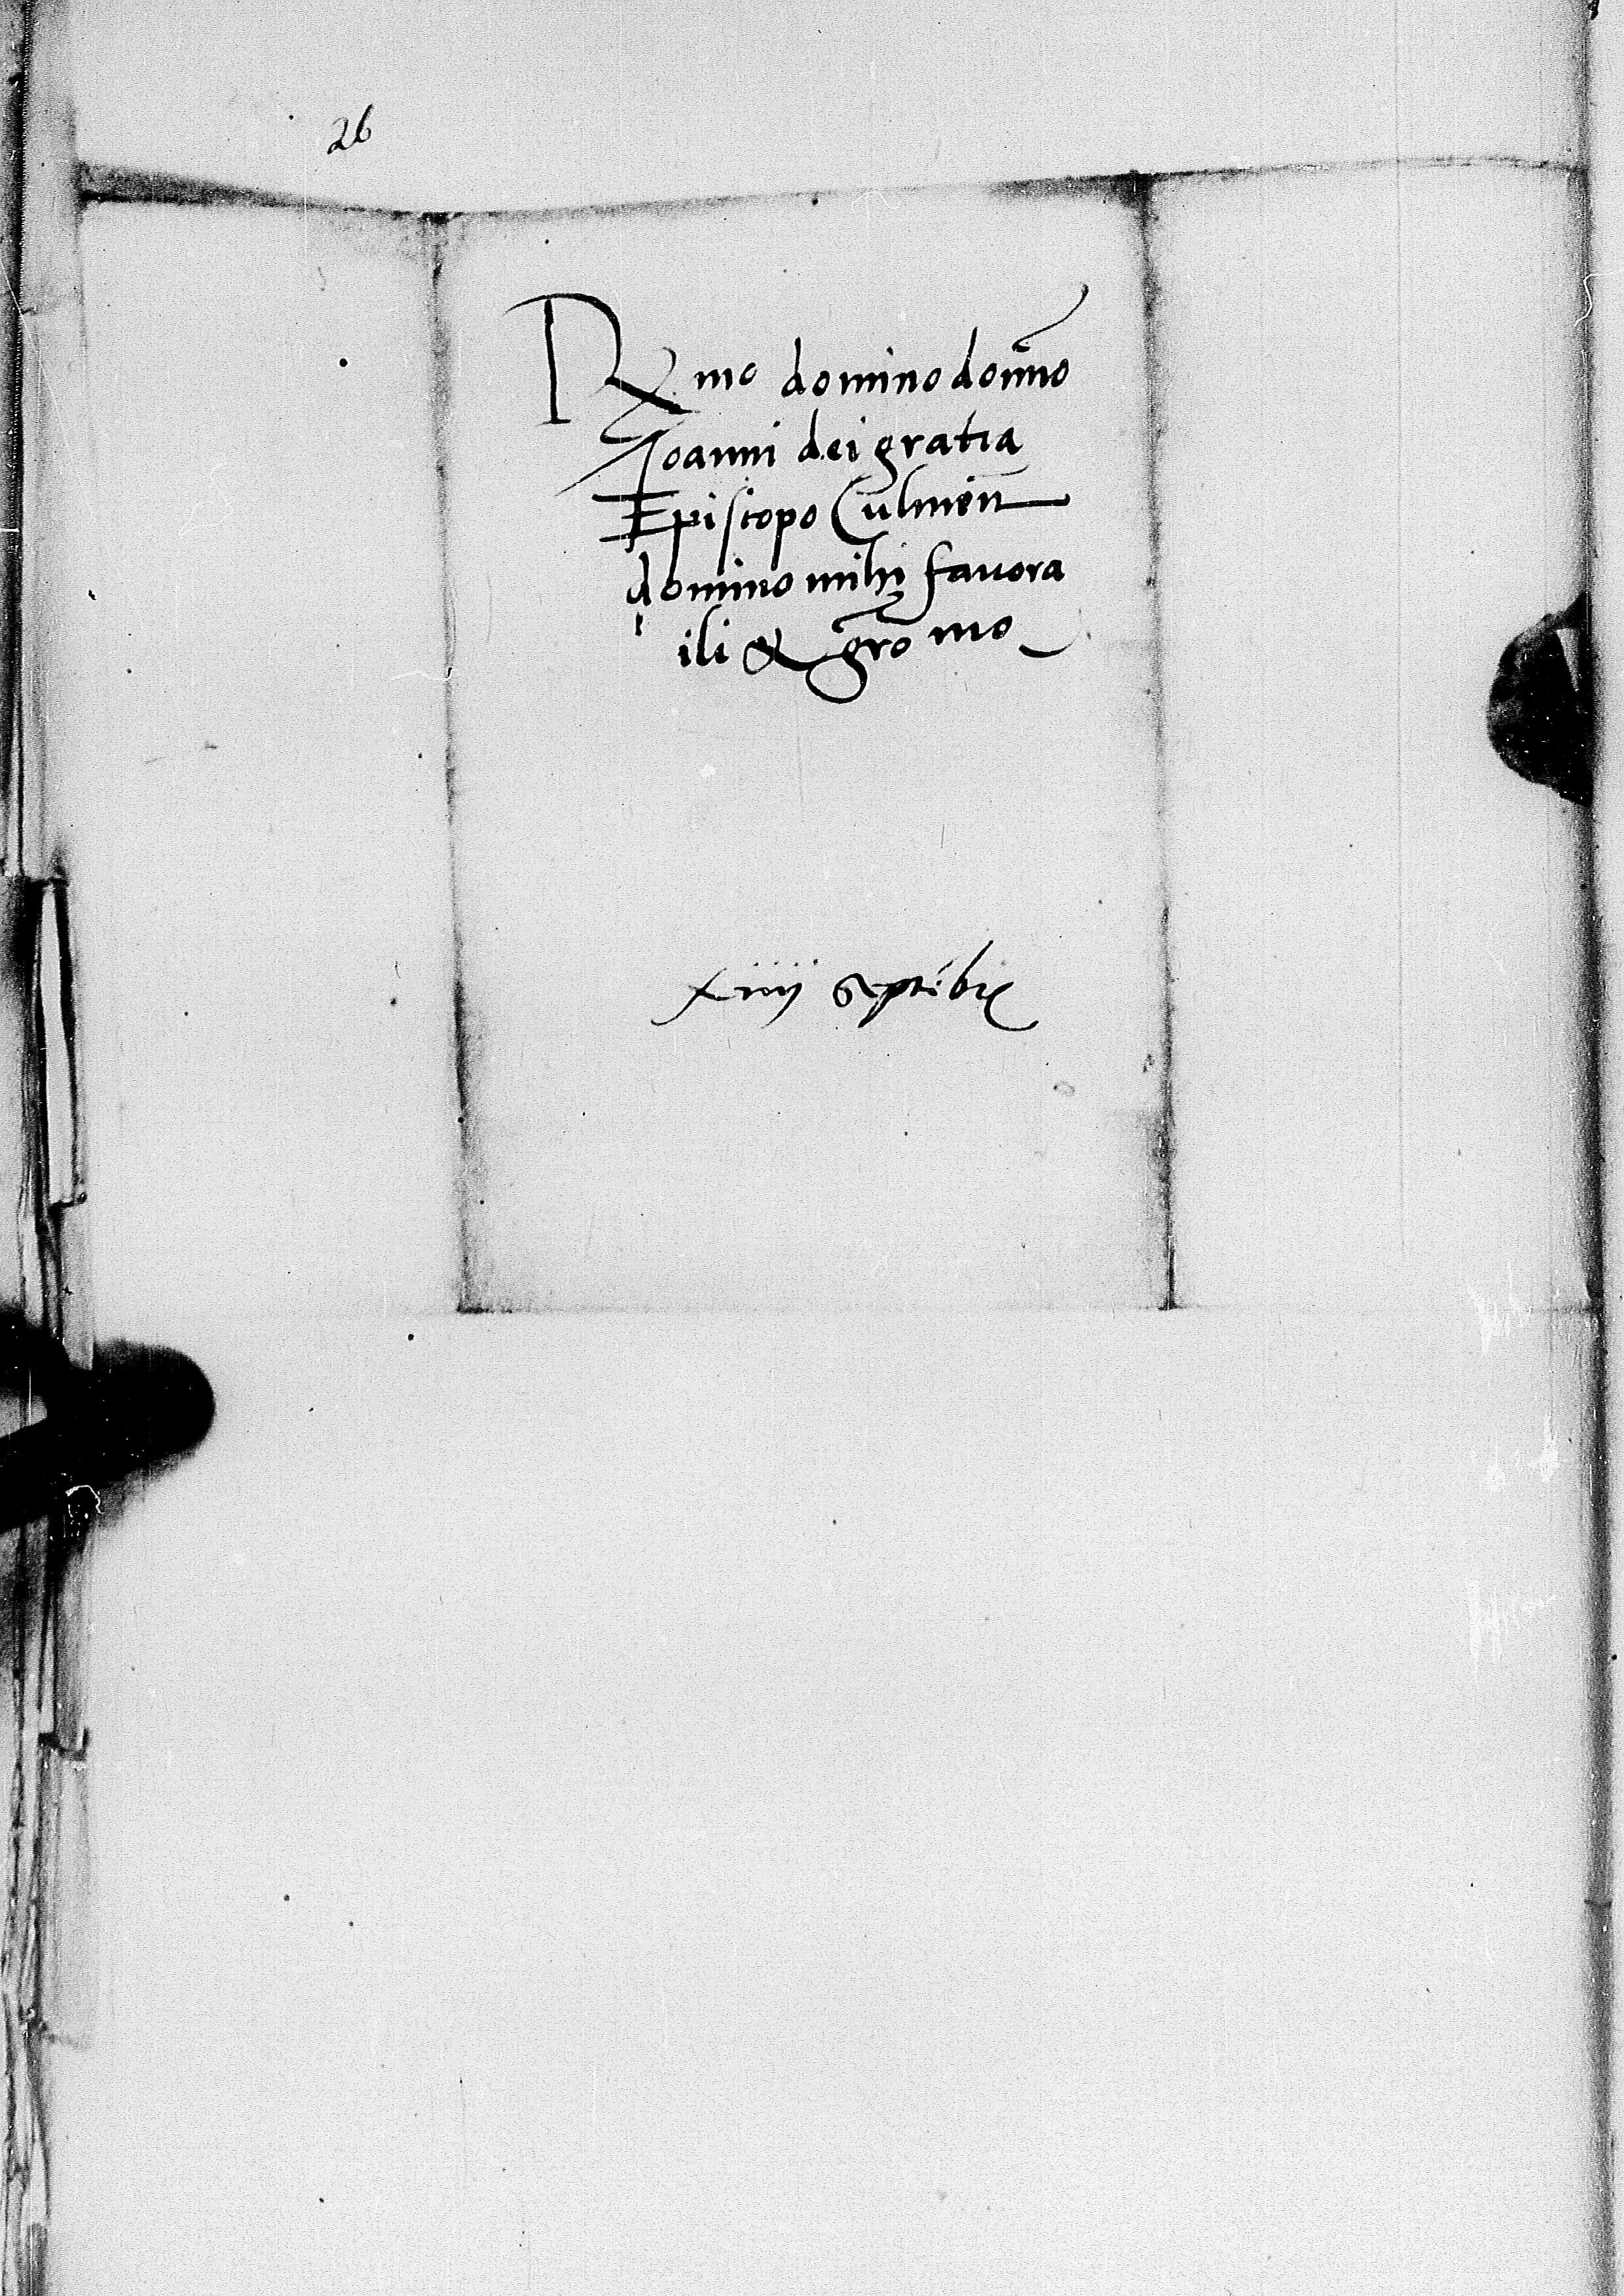 26
Rmo domino dom̄o
Joanni dei gratia
Episcopo Culmen̄
domino mihi favora
ili & gr̄omo
xiiij septēbris